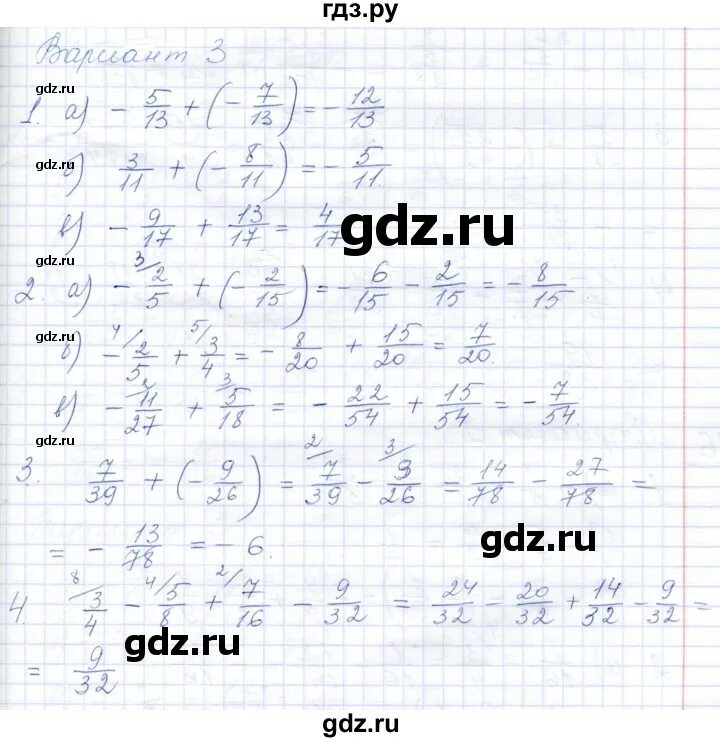 гдз.ру
Вариант 3
gdz.ru
1. а) - 5/13 + (- 7/13) = - 12/13
gdz.ru
б) 3/11 + (- 8/11) = - 5/11.
в) - 9/17 + 13/17 = 4/17
gdz.ru
gdz.ru
2. а) - 3/ 2/5 + (- 2/15) = - 6/15 - 2/15 = - 8/15
gdz.ru
б) - 4/ 2/5 + 5/ 3/4 = - 8/20 + 15/20 = 7/20.
gdz.ru
в) - 2/ 11/27 + 3/ 5/18 = - 22/54 + 15/54 = - 7/54.
gdz.ru
3. 7/39 + (- 9/26) = 2/ 7/39 - 3/ 9/26 = 14/78 - 27/78 =
gdz.ru
gdz.ru
= - 13/78 = - 6.
gdz.ru
4. 8/ 3/4 - 4/ 5/8 + 2/ 7/16 - 9/32 = 24/32 - 20/32 + 14/32 - 9/32 =
gdz.ru
gdz.ru
= 9/32
gdz.ru